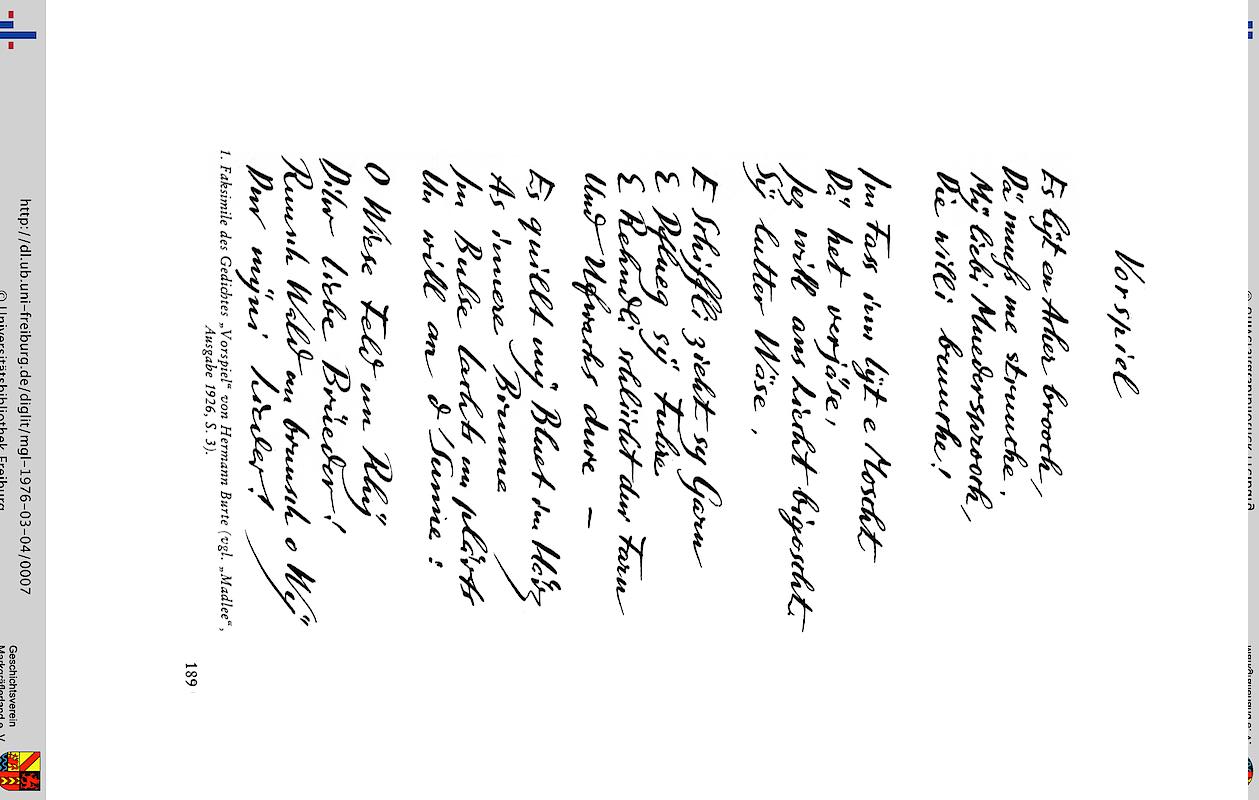 Vorspiel
Es lijt en Acher brooch,
Dä mueß me struuche,
Mÿ liebi Muedersprooch,
Die willi bruuche!
Im Fass inn lijt e Moscht
Dä het verjäse,
Jez will ans Liecht bigoscht
Sÿ lutter Wäse,
E Schiffli zieht sy Garn
E Pflueg sÿ Fuhre
E Rehndli schlüüft dur Farn
Und Ufwachs dure —
Es quillt mÿ Bluet im Häz
As innere Brunne,
Im Bulse lachts un plärts
Un will an d'Sunne:
O Wiese Feld un Rhÿ
Dihr liebe Brüeder!
Ruusch Wald un bruusch o Wÿ
Dur mÿni Lieder!
1. Faksimile des Gedichtes „Vorspiel“ von Hermann Burte (vgl. „Madlee“,
Ausgabe 1926, S. 3).
189
http://dl.ub.uni-freiburg.de/diglit/mgl-1976-03-04/0007
© Universitätsbibliothek Freiburg
Geschichtsverein
Markgräflerland e. V.